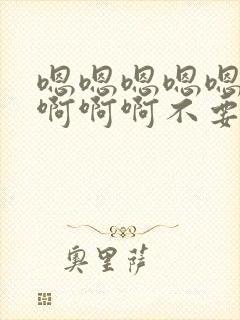 嗯嗯嗯嗯嗯
啊啊啊不要
奥里萨